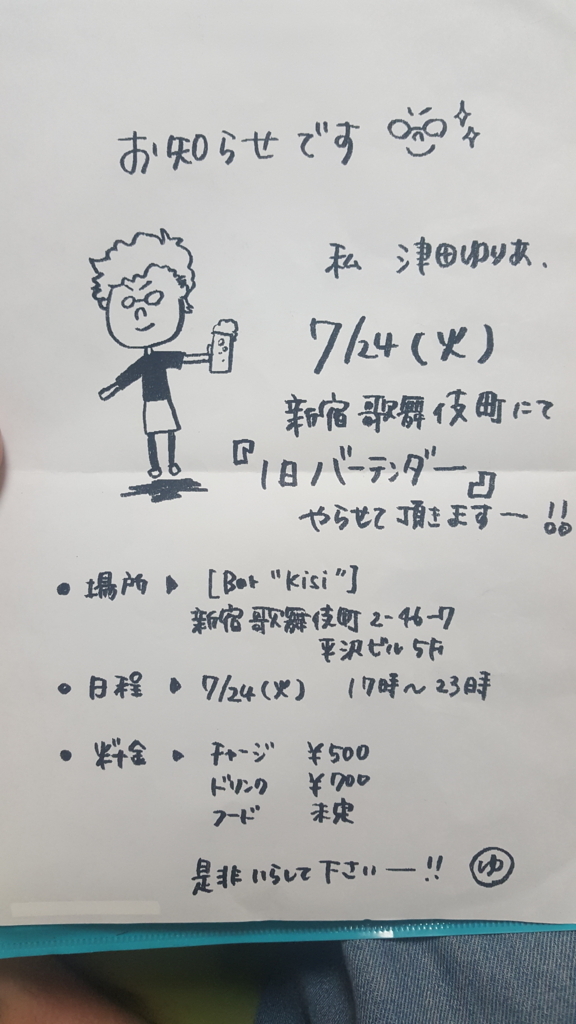 お知らせです
私 津田ゆりあ、
7/24(火)
新宿歌舞伎町にて
『1日バーテンダー』
やらせて頂きますー!!
• 場所 ▶ [Bar "Kisi"]
新宿歌舞伎町2-46-7
平沢ビル5F
• 日程 ▶ 7/24(火) 17時〜23時
• 料金 ▶ チャージ ¥500
ドリンク ¥700
フード 未定
是非いらして下さいー!! ゆ